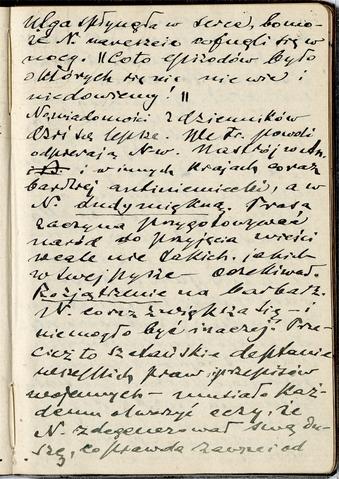 Ulga spłynęła w serca, bo mo-
że N. nareszcie cofnęli się w
nocy. || Co to epizodów było
o których się nic nie wie i
nie dowiemy! ||
Wiadomości z dzienników
dziś są lepsze. We Fr. powoli
odpierają N-w. Nastrój w An.
i w innych krajach coraz
bardziej antiniemiecki, a w
N. dudy miękną. Prasa
zaczyna przygotowywać
naród do przyjęcia wieści
wcale nie takich, jakich
w swej pysze oczekiwał.
Rozjątrzenie na barbarz.
N. coraz zwiększa się – i
nie mogło być inaczej! Prze-
cież to szatańskie deptanie
wszelkich praw i przepisów
wojennych – musiało każ-
demu otworzyć oczy, że
N. zdegenerował swą du-
szę, co prawda zawsze od